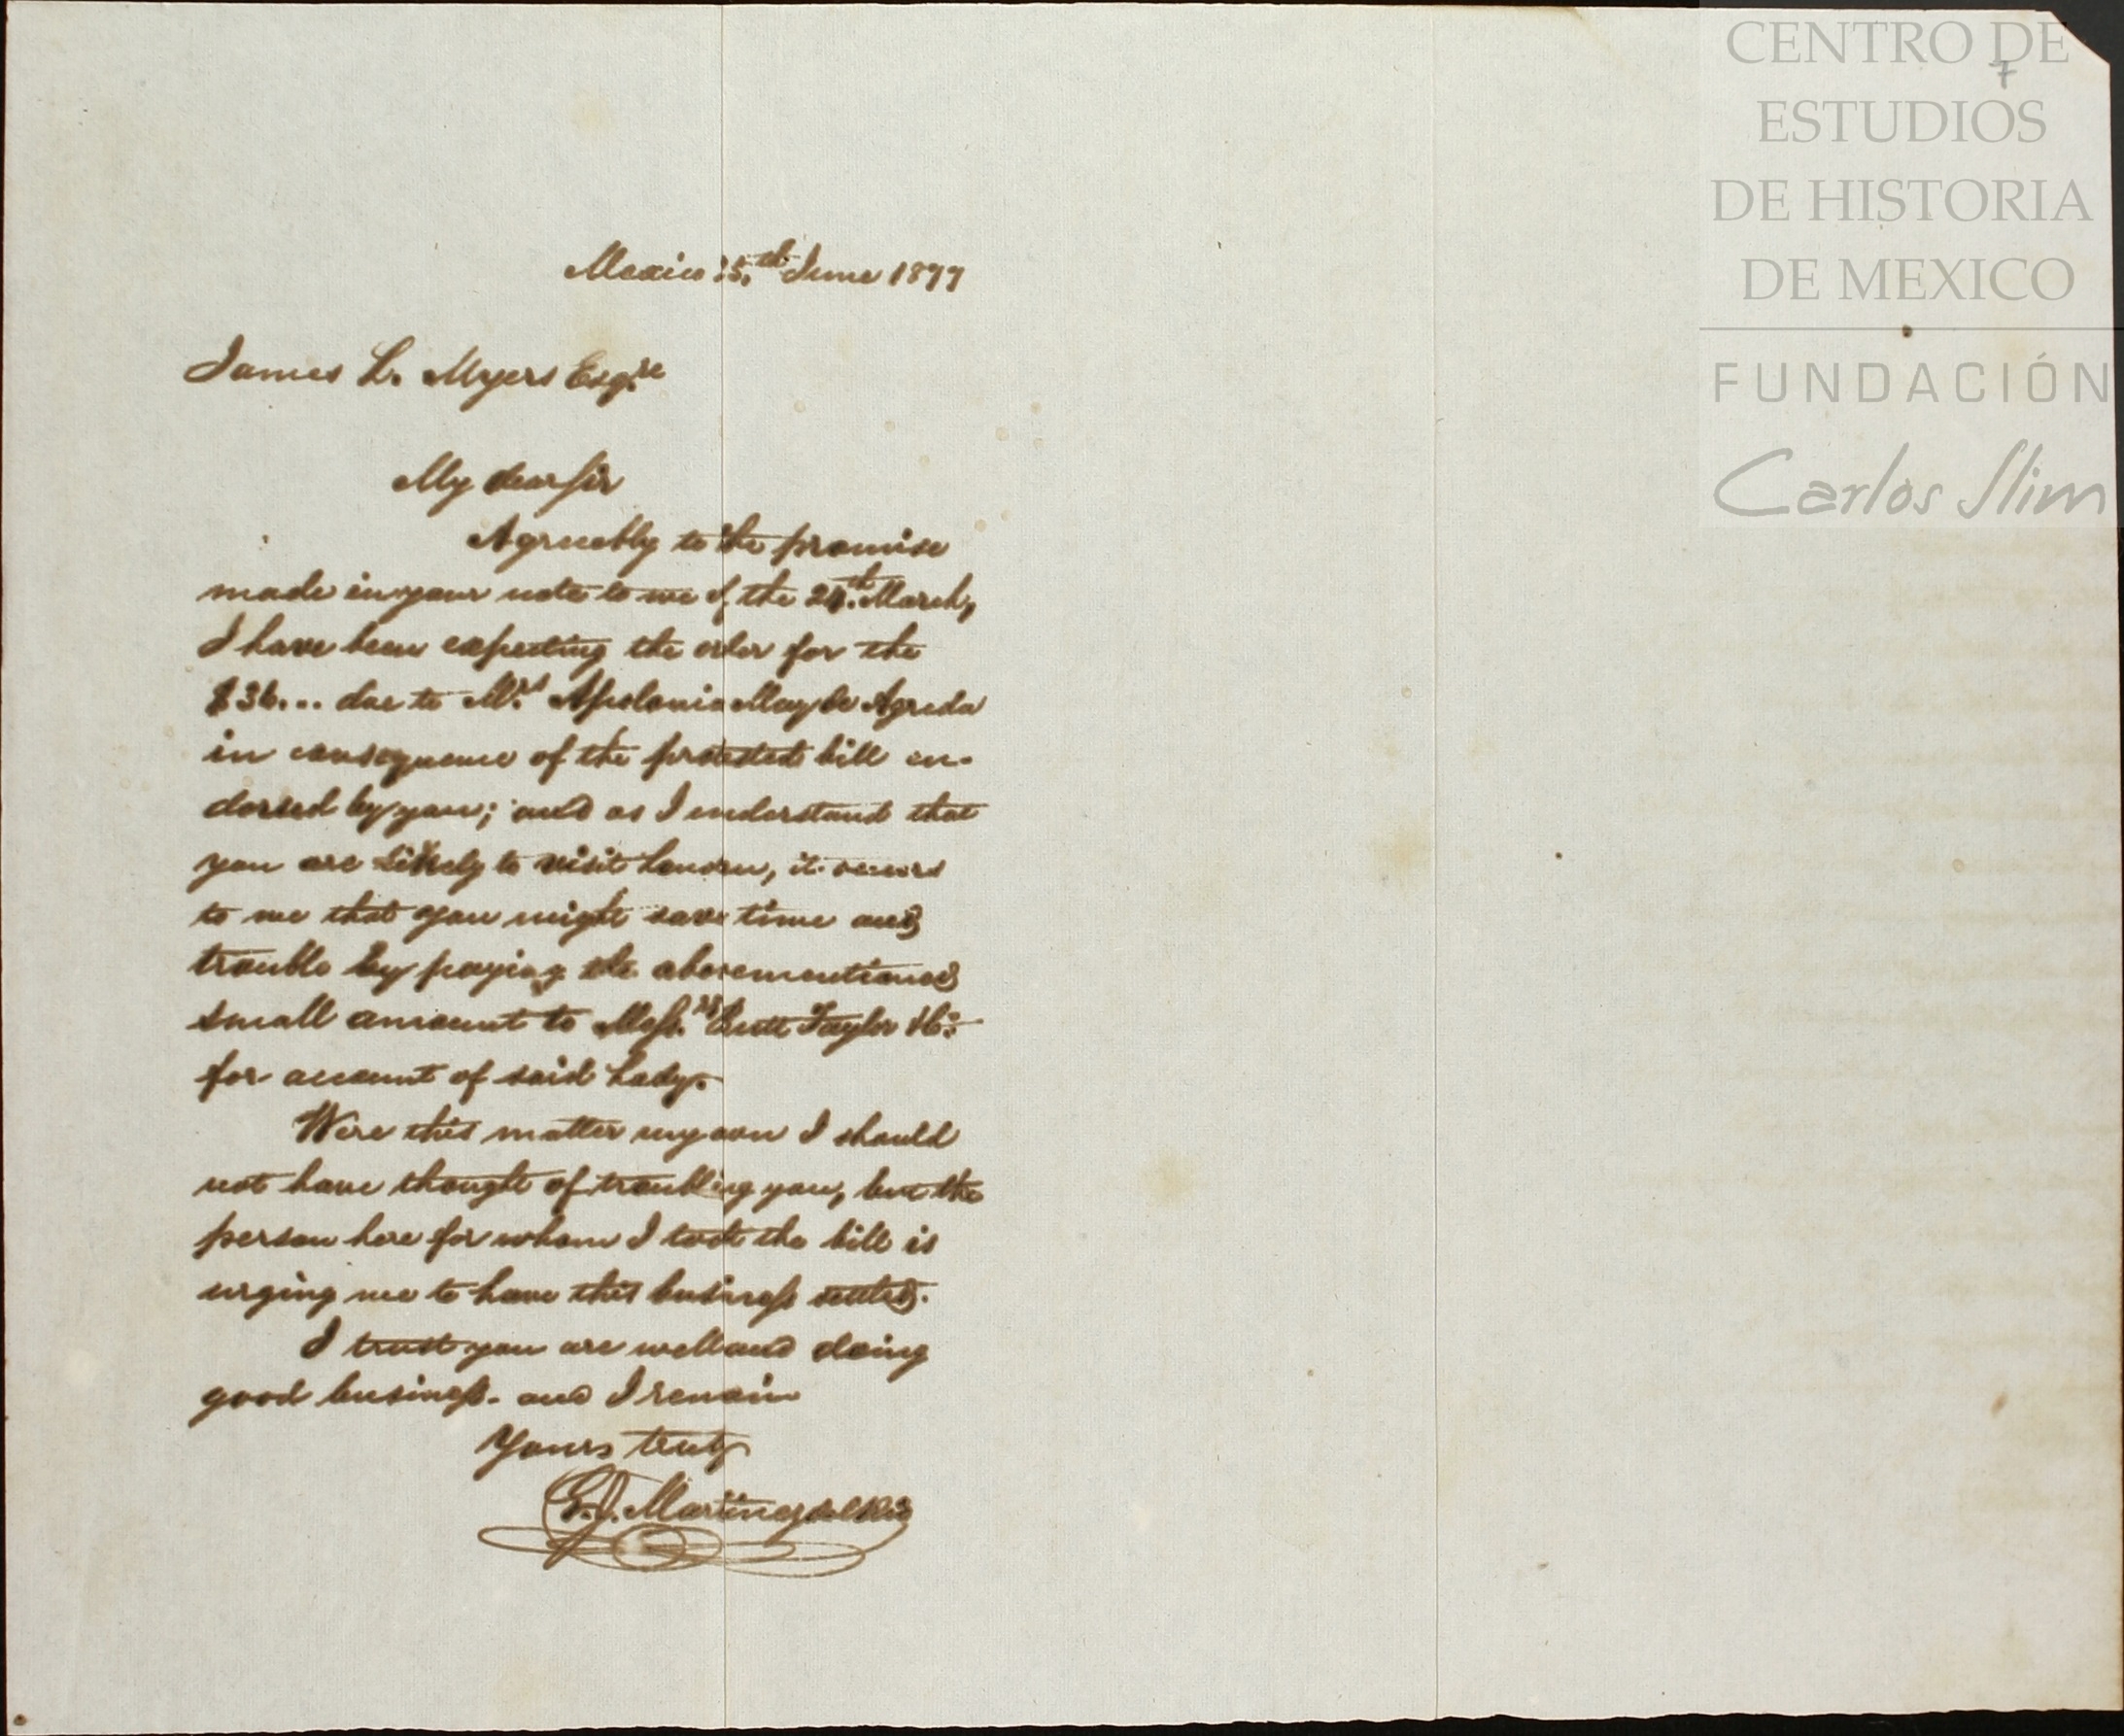 CENTRO DE
ESTUDIOS
DE HISTORIA
DE MEXICO
FUNDACIÓN
Carlos Slim
7
Mexico 25.th June 1877
James L. Myers Esq.re
My dear Sir
Agreeably to the promise
made in your note to me of the 24.th March,
I have been expecting the order for the
$36... due to M.rs Apolonia May de Agreda
in consequence of the protested bill en-
dorsed by you; and as I understand that
you are likely to visit London, it occurs
to me that you might save time and
trouble by paying the abovementioned
small amount to Mess.rs Taylor &Co
for account of said Lady.
Were this matter my own I should
not have thought of troubling you, but the
person here for whom I took the bill is
urging me to have this business settled.
I trust you are well and doing
good business. and I remain
Yours truly
Martinez del Rio